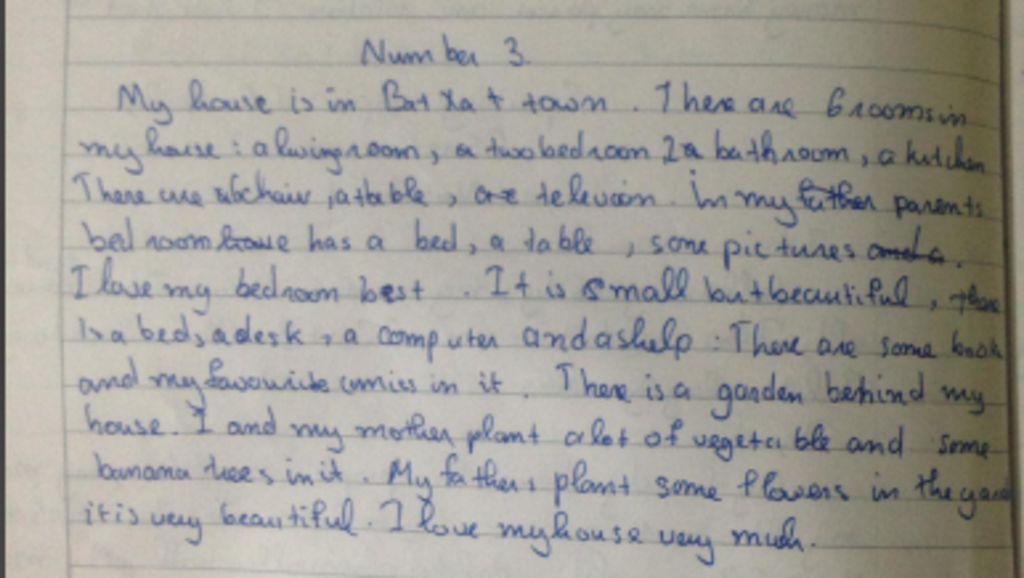 Number 3
My house is in Bat Xat town. There are 6 rooms in
my house : a livingroom, a two bedroom 2a bathroom, a kitchen
There are chair, a table, televion. In my father parents
bed room have has a bed, a table, some pictures and a.
I love my bedroom best. It is small but beautiful, there
is a bed, a desk, a computer and a shelp : There are some book
and my favourite comics in it. There is a garden behind my
house. I and my mother plant a lot of vegetable and some
banana trees in it. My father plant some flowers in the yard
it is very beautiful. I love my house very much.